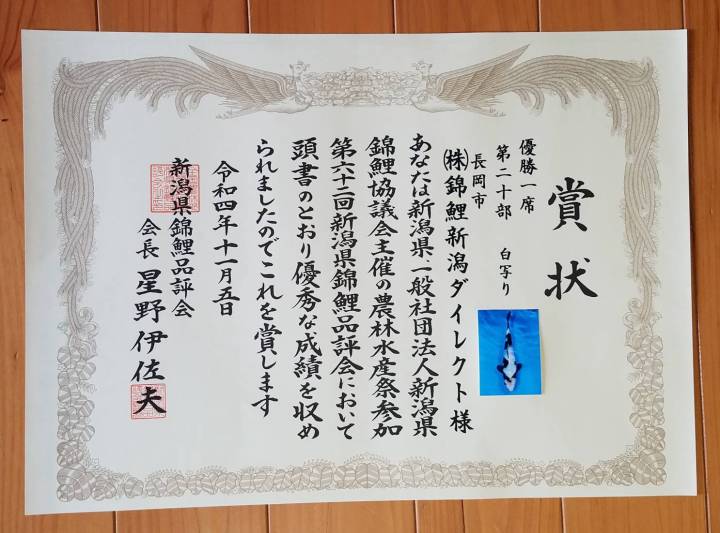 賞状
優勝一席
第二十部 白写り
長岡市
㈱錦鯉新潟ダイレクト様
あなたは新潟県、一般社団法人新潟県
錦鯉協議会主催の農林水産祭参加
第六十二回新潟県錦鯉品評会において
頭書のとおり優秀な成績を収め
られましたのでこれを賞します
令和四年十一月五日
新潟県錦鯉品評会
会長 星野伊佐夫